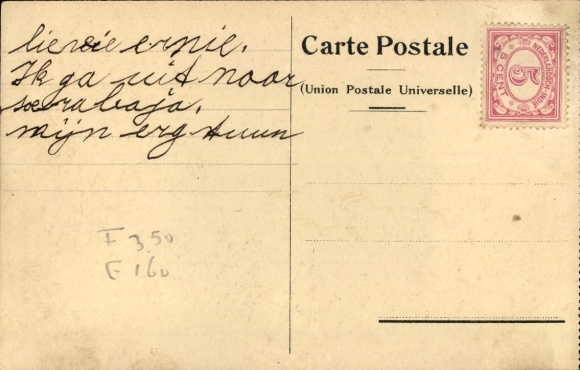 lievie ernie.
Ik ga uit naar
soerabaja.
mijn erg
Carte Postale
(Union Postale Universelle)
NEDERLANDSCH-INDIE
5
5 CENT
F 3.50
F 160